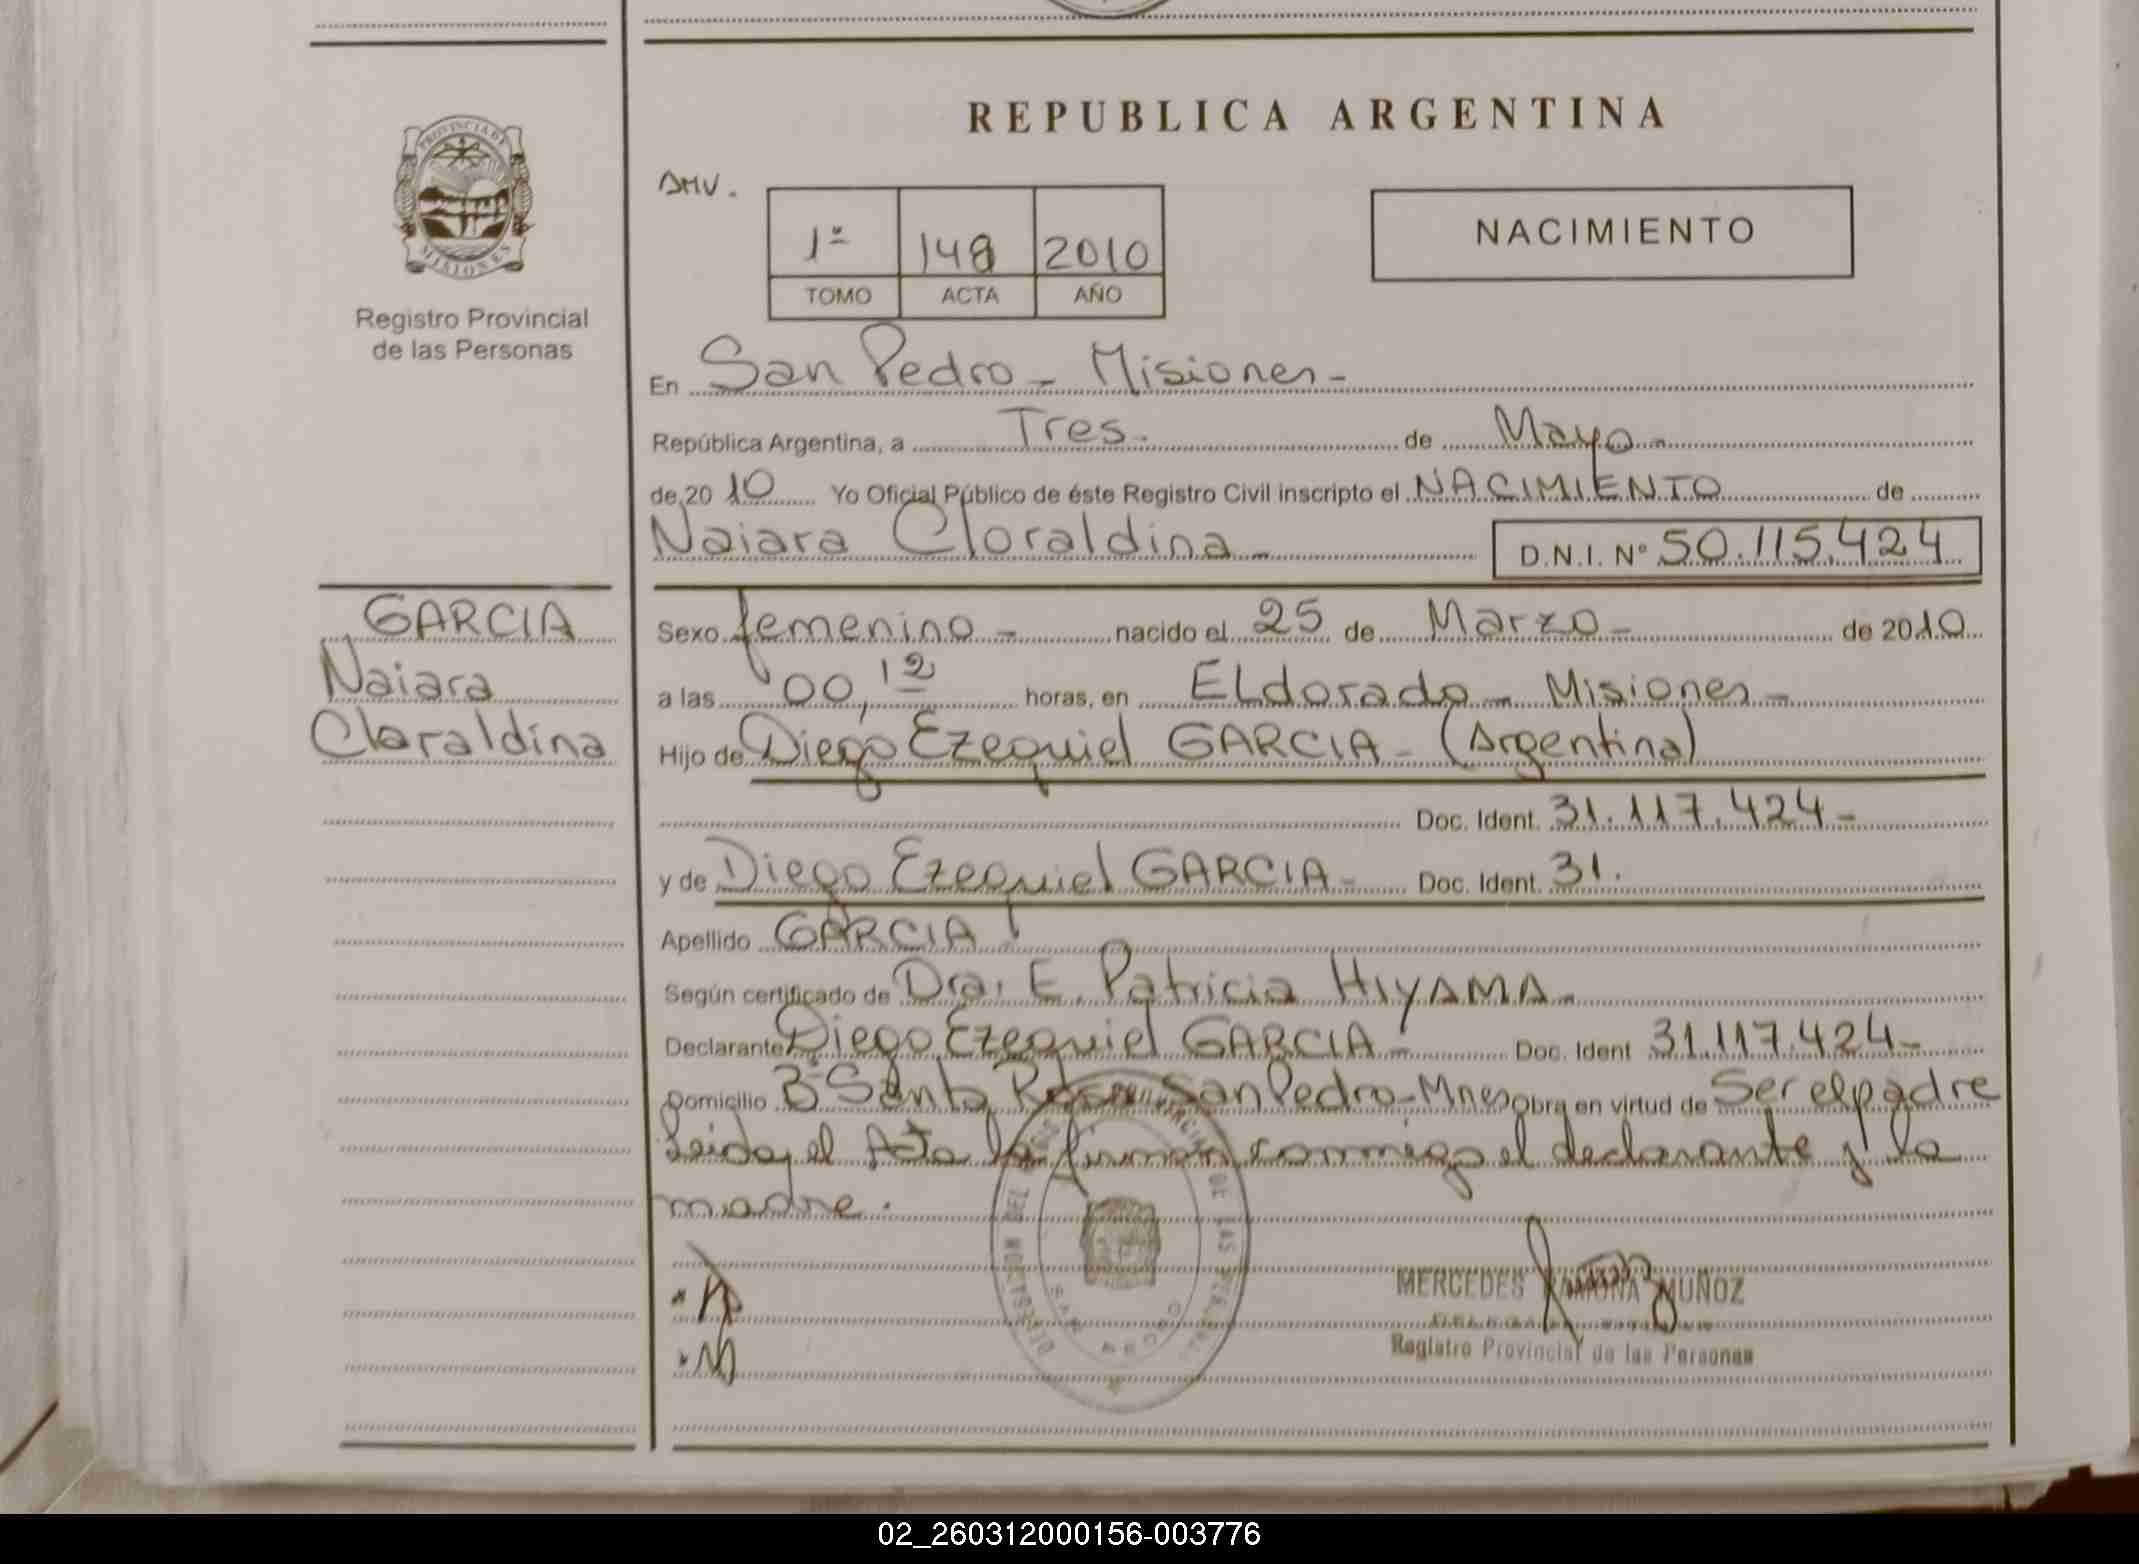 REPUBLICA ARGENTINA
PROVINCIA DE
MISIONES
Registro Provincial
de las Personas
DMV.
1º 148 2010
TOMO ACTA AÑO
NACIMIENTO
En San Pedro - Misiones -
República Argentina, a Tres. de Mayo -
de 2010 Yo Oficial Público de éste Registro Civil inscripto el NACIMIENTO de
Naiara Cloraldina - D.N.I. Nº 50.115.424
GARCIA
Naiara
Claraldina
Sexo femenino - nacido el 25 de Marzo - de 2010
a las 00,12 horas, en ELdorado - Misiones -
Hijo de Diego Ezequiel GARCIA - (Argentina)
Doc. Ident. 31.117.424 -
y de Diego Ezequiel GARCIA - Doc. Ident. 31.
Apellido GARCIA
Según certificado de Dra. E. Patricia HIYAMA -
Declarante Diego Ezequiel GARCIA - Doc. Ident 31.117.424 -
Domicilio Bº Santa Rosa San Pedro - Mnes Obra en virtud de Ser el padre
Leida el Acta la firman conmigo el declarante y la
madre.
SAN PEDRO
MERCEDES RAMONA MUÑOZ
Registro Provincial de las Personas
02_260312000156-003776